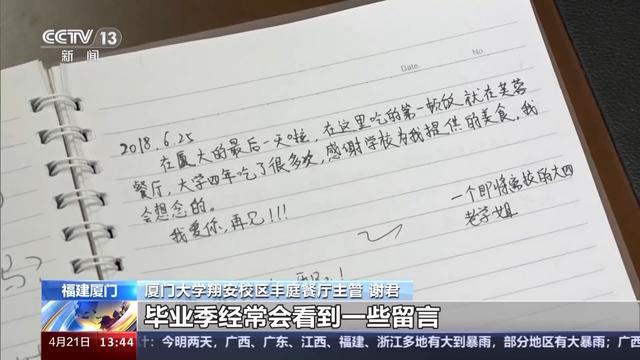 CCTV 13
新闻
Date.
No.
2018.6.25
在厦大的最后一天啦，在这里吃的第一顿饭就在芙蓉
餐厅，大学四年吃了很多次，感谢学校为我提供的美食，我
会想念的。
我爱你，再见!!!
一个即将离校的大四
老学姐
福建厦门
厦门大学翔安校区丰庭餐厅主管 谢君
毕业季经常会看到一些留言
4月21日 13:44
今明两天，广西、广东、江西、福建、浙江多地有大到暴雨，部分地区有大暴雨；广西